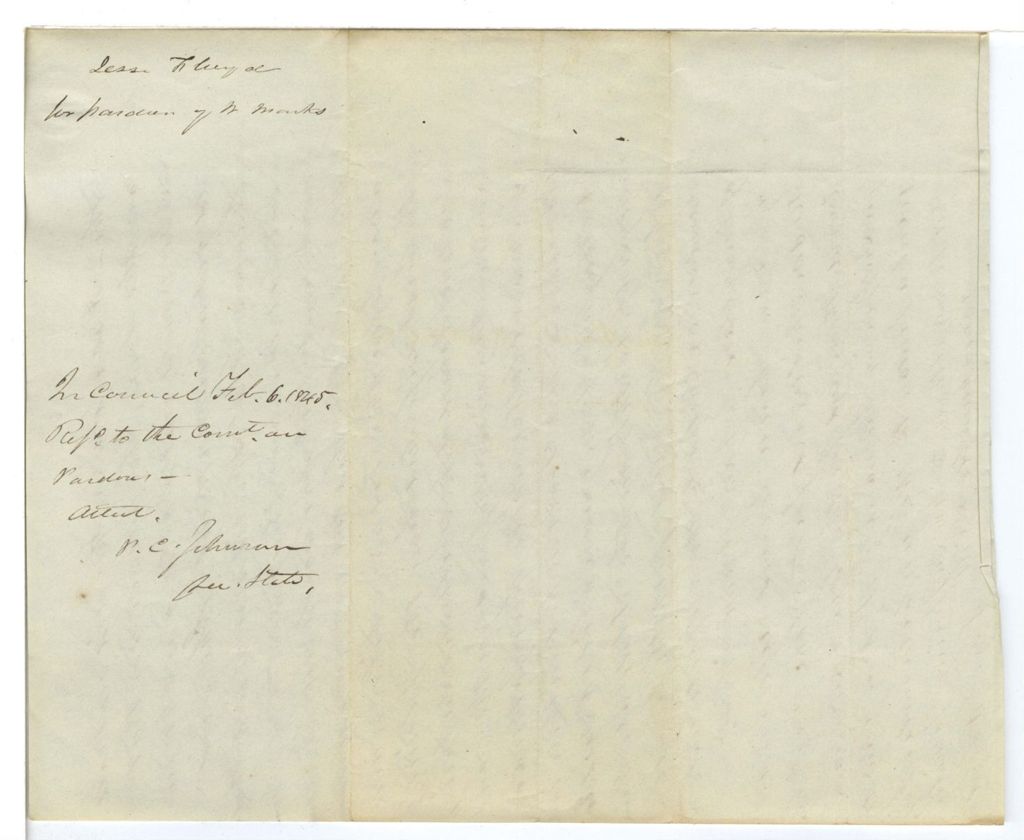 Jesse Floyd
for pardon of W Monks
In Council Feb. 6. 1845.
Refd to the Comt. on
Pardons —
Attest.
P. C. Johnson
Sec. State,